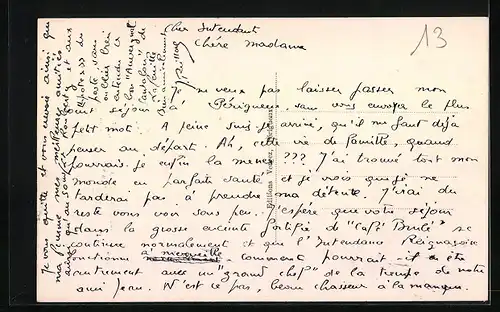 Cher Intendant
Chère Madame
13
Je ne veux pas laisser passer mon
court séjour à Périgueux sans vous envoyer le plus
petit mot. A peine suis-je arrivé, qu'il me faut déjà
penser au départ. Ah, cette vie de famille, quand
pourrais-je enfin la mener ??? J'ai trouvé tout mon
monde en parfaite santé et je vois que je ne
tarderai pas à prendre ma détente. J'irai du
reste vous voir sous peu. J'espère que votre séjour
dans la grosse enceinte fortifiée de "Café Brulé" se
continue normalement et que l'Intendance
fonctionne à merveille. Comment pourrait-il en être
autrement avec un "grand chef" de la trempe de notre
ami Jean. N'est ce pas, beau chasseur à la manque.
Je vous quitte et vous envoie ainsi que
ma femme nos meilleures amitiés
ainsi qu'au et aux
du
poste sans
oublier bien
entendu le
"de
Bien amicalement
Editions